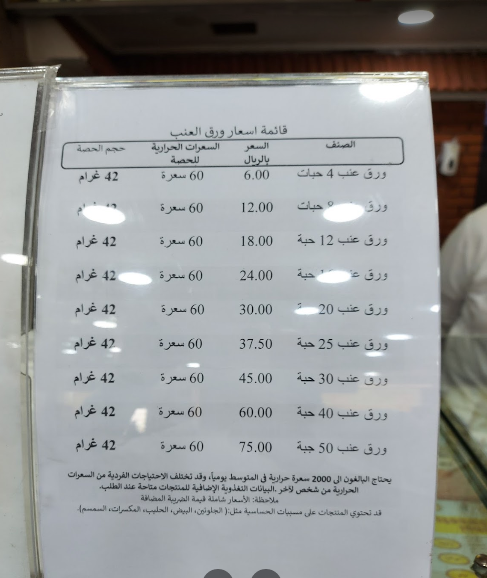 قائمة اسعار ورق العنب
الصنف السعر بالريال السعرات الحرارية للحصة حجم الحصة
ورق عنب 4 حبات 6.00 60 سعرة 42 غرام
ورق حبات 12.00 60 سعرة 42
ورق عنب 12 حبة 18.00 60 سعرة 42 غرام
ورق عنب حبة 24.00 60 سعرة 42 غرام
ورق عنب 20 30.00 60 سعرة 42 غرام
ورق عنب 25 حبة 37.50 60 سعرة 42 غرام
ورق عنب 30 حبة 45.00 60 سعرة 42 غرام
ورق عنب 40 حبة 60.00 60 سعرة 42 غرام
ورق عنب 50 حبة 75.00 60 سعرة 42 غرام
يحتاج البالغون الى 2000 سعرة حرارية في المتوسط يومياً، وقد تختلف الاحتياجات الفردية من السعرات
الحرارية من شخص لآخر .البيانات التغذوية الإضافية للمنتجات متاحة عند الطلب.
ملاحظة: الأسعار شاملة قيمة الضريبة المضافة
قد تحتوي المنتجات على مسببات الحساسية مثل:( الجلوتين، البيض، الحليب، المكسرات، السمسم).